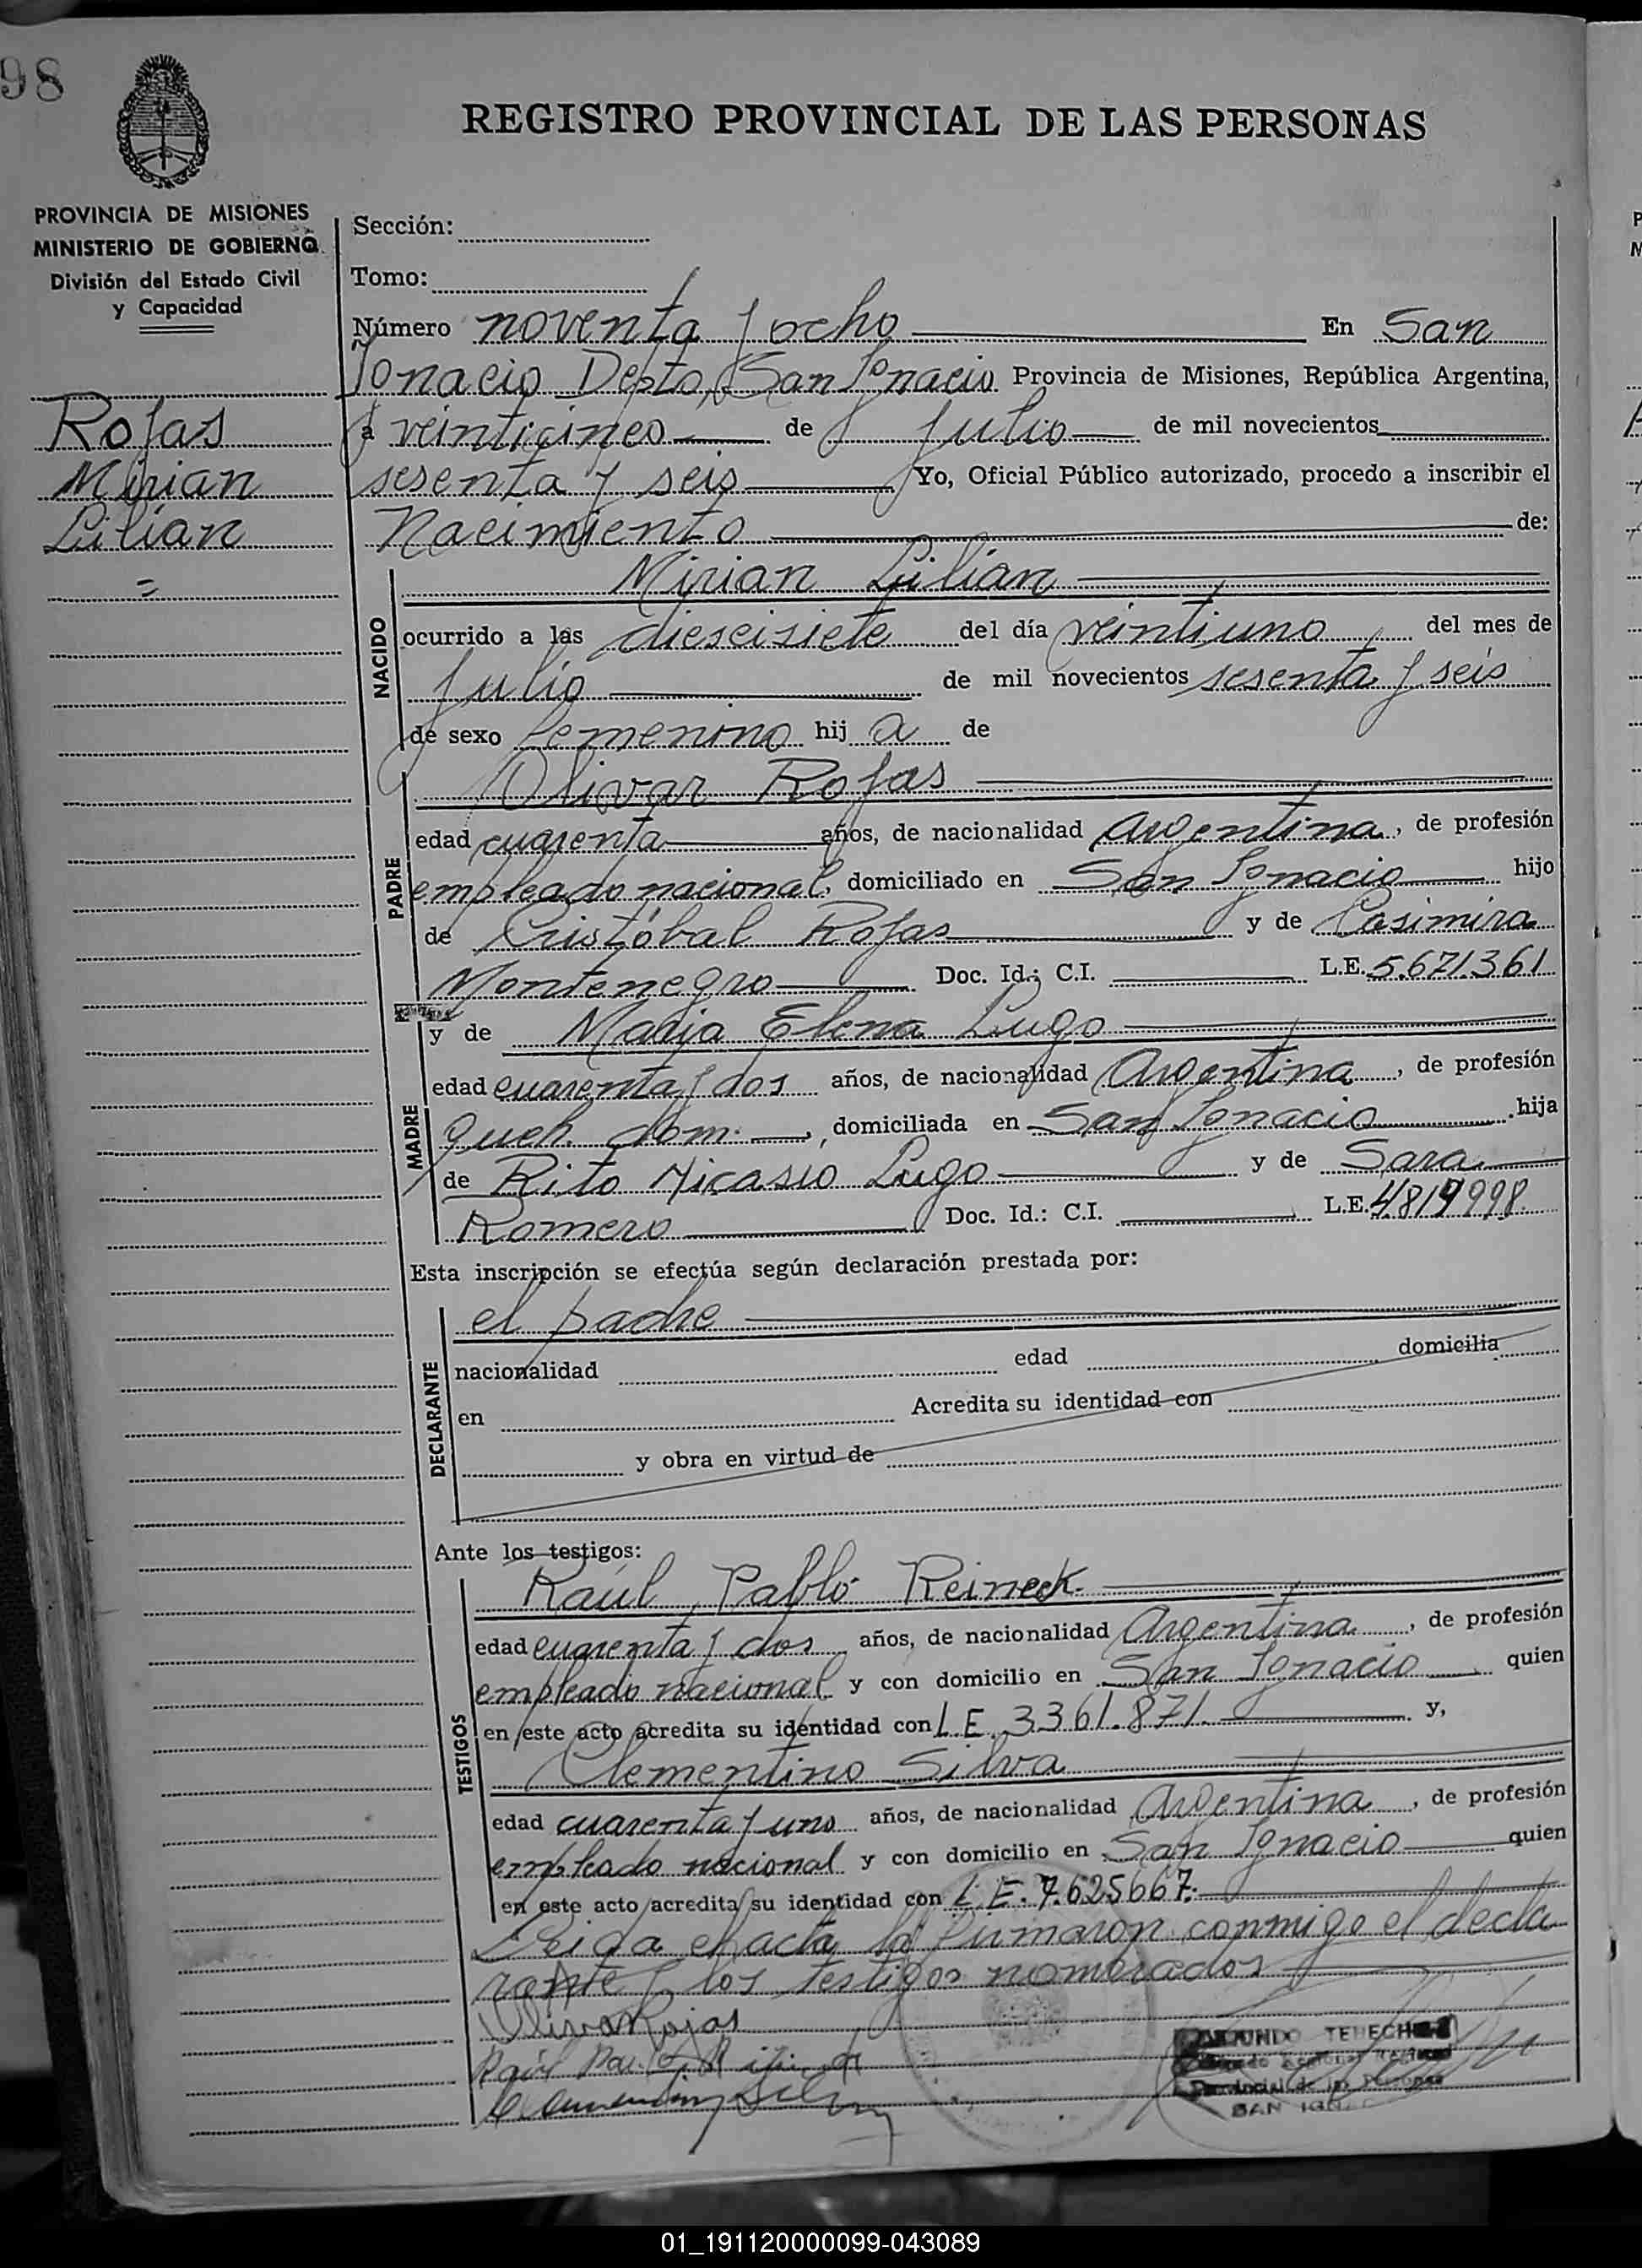 98
REGISTRO PROVINCIAL DE LAS PERSONAS
PROVINCIA DE MISIONES
MINISTERIO DE GOBIERNO
División del Estado Civil
y Capacidad
Rojas
Mirian
Lilian
=
Sección:
Tomo:
Número noventa y ocho En San
Ignacio Depto, San Ignacio Provincia de Misiones, República Argentina,
a veinticinco de julio de mil novecientos
sesenta y seis Yo, Oficial Público autorizado, procedo a inscribir el
Nacimiento de:
NACIDO
Mirian Lilian
ocurrido a las dieseisiete del día veintiuno del mes de
julio de mil novecientos sesenta y seis
de sexo femenino hij a de
PADRE
Olivar Rojas
edad cuarenta años, de nacionalidad Argentina, de profesión
empleado nacional, domiciliado en San Ignacio hijo
de Cristóbal Rojas y de Casimira
Montenegro Doc. Id.: C.I. L.E. 5.671.361
MADRE
y de Maria Elena Lugo
edad cuarenta y dos años, de nacionalidad Argentina, de profesión
queh. dom. , domiciliada en San Ignacio hija
de Rito Nicasio Lugo y de Sara
Romero Doc. Id.: C.I. L.E. 4819998.
Esta inscripción se efectúa según declaración prestada por:
DECLARANTE
el padre
nacionalidad edad domicilia
en Acredita su identidad con
y obra en virtud de
Ante los testigos:
TESTIGOS
Raúl Pablo Reineck
edad cuarenta y dos años, de nacionalidad Argentina, de profesión
empleado nacional y con domicilio en San Ignacio quien
en este acto acredita su identidad con L E. 3361.871. y,
Clementino Silva
edad cuarenta y uno años, de nacionalidad Argentina, de profesión
empleado nacional y con domicilio en San Ignacio quien
en este acto acredita su identidad con L.E. 7.625667.
Leida el acta la firmaron conmigo el decla
rante y los testigos nombrados
Olivar Rojas
Raúl
Provincial de las Personas
SAN
01_191120000099-043089